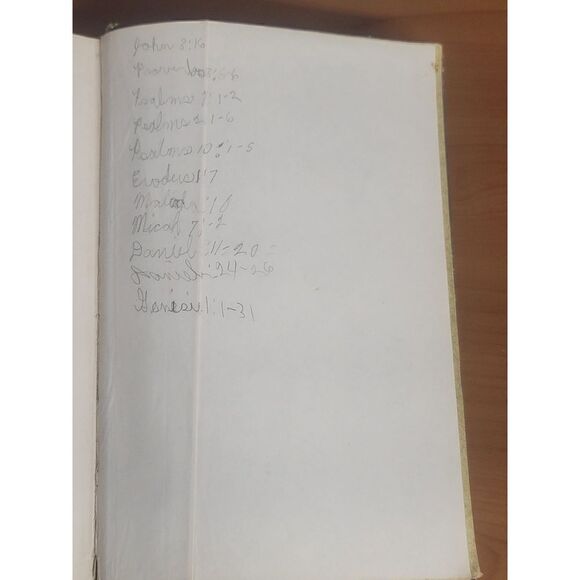 John 3:16
Proverbs 3:5-6
Psalms 1:1-2
Psalms 2 1-6
Psalms 10:1-5
Exodus 1:7
Micah 7:-2
Daniel :11-20
:24-26
Genesis 1:1-31